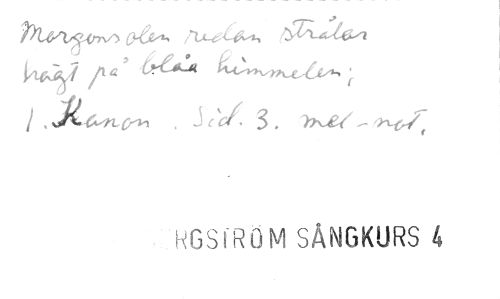 Morgonsolen redan strålar
högt på blåa himmelen;
1. Kanon. Sid. 3. mel-not.
RGSTRÖM SÅNGKURS 4